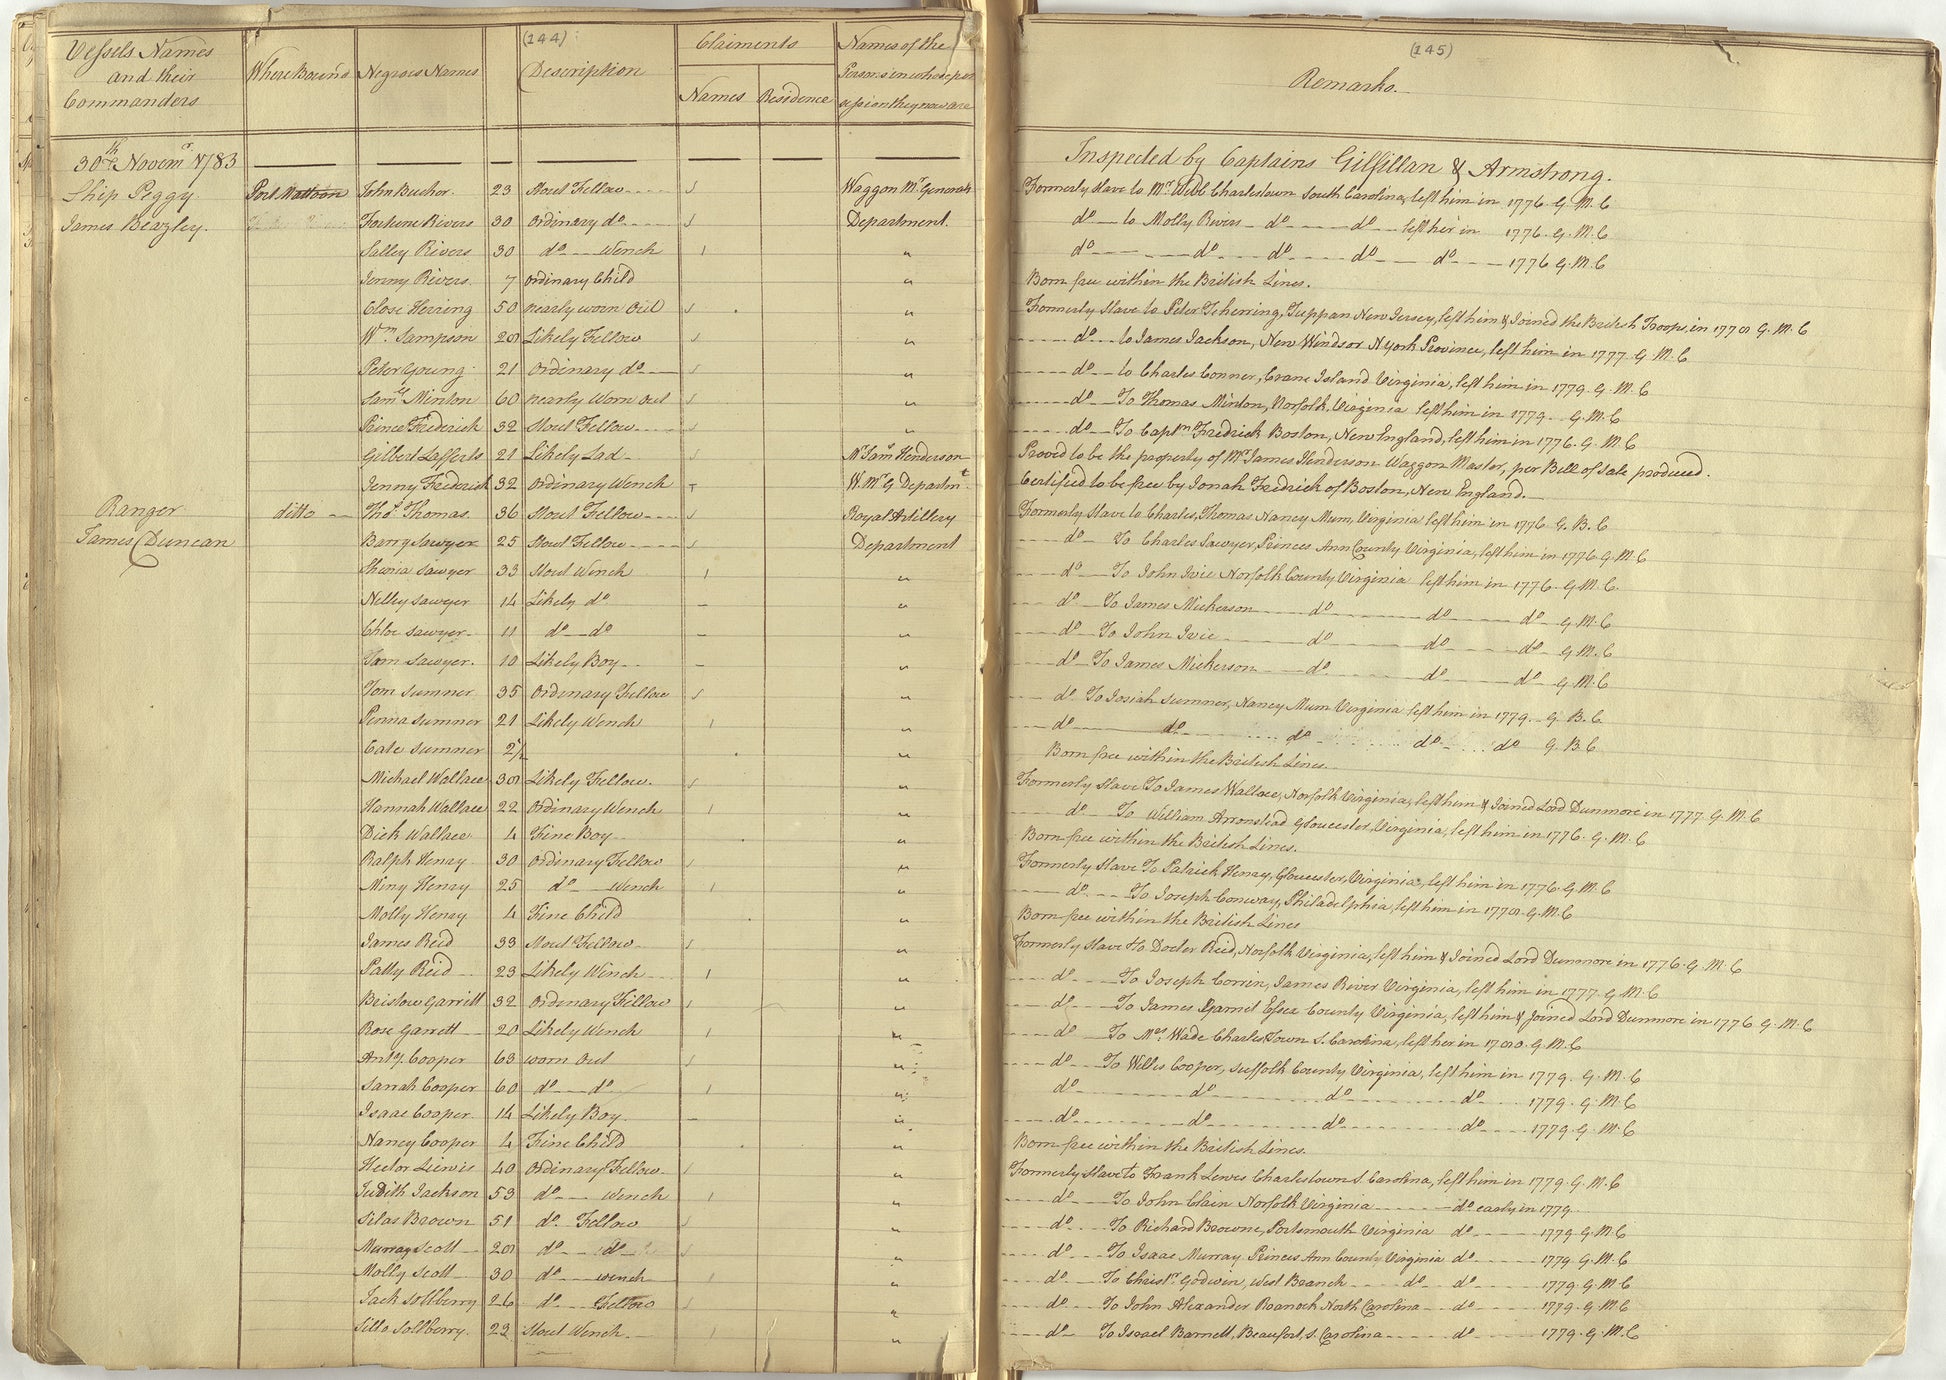 (144)
Vessels Names and their Commanders | Where Bound | Negroes Names | Description | Claiments Names | Residence | Names of the Persons in whose possession they now are
30th Novemr 1783
Ship Peggy James Beazley | Port Mattoon | John Buchor. | 23 | Stout Fellow | Waggon Mr General
Fortune Rivers | 30 | Ordinary do | Department
Salley Rivers | 30 | do Wench | "
Jenny Rivers | 7 | ordinary Child | "
Close Herring | 50 | nearly worn Out | "
Wm Sampson | 28 | Likely Fellow | "
Peter Young | 21 | Ordinary do | "
Saml Minton | 60 | nearly Worn out | "
Prince Frederick | 32 | Stout Fellow | "
Gilbert Lafferts | 21 | Likely Lad | Mr Jams Henderson
Jenny Frederick | 32 | Ordinary Wench | W. Mr G Departmt
Ranger James Duncan | ditto | Thos Thomas | 36 | Stout Fellow | Royal Artillery
Barry Sawyer | 25 | Stout Fellow | Department
Sawyer | 33 | Stout Wench | "
Nelley Sawyer | 14 | Likely do | "
Chloe Sawyer | 11 | do do | "
Tom Sawyer | 10 | Likely Boy | "
Tom Sumner | 35 | Ordinary Fellow | "
Penna Sumner | 21 | Likely Wench | "
Cate Sumner | 2½
Michael Wallace | 38 | Likely Fellow | "
Hannah Wallace | 22 | Ordinary Wench | "
Dick Wallace | 4 | Fine Boy | "
Ralph Henry | 30 | Ordinary Fellow | "
Miny Henry | 25 | do Wench | "
Molly Henry | 4 | Fine Child | "
James Reid | 33 | Stout Fellow | "
Patty Reid | 23 | Likely Wench | "
Bristow Garrett | 32 | Ordinary Fellow | "
Rose Garrett | 20 | Likely Wench | "
Anty Cooper | 63 | worn Out | "
Sarrah Cooper | 60 | do do | "
Isaac Cooper | 14 | Likely Boy | "
Nancy Cooper | 4 | Fine Child | "
Hector Liewis | 40 | Ordinary Fellow | "
Judith Jackson | 53 | do Wench | "
Silas Brown | 51 | do Fellow | "
Murray Scott | 28 | do do | "
Molly Scott | 30 | do wench | "
Jack Sollberry | 26 | do Fellow | "
Sillo Sollberry | 23 | Stout Wench | "
(145)
Remarks.
Inspected by Captains Gilfillan & Armstrong.
Formerly slave to Mr Webb Charlestown South Carolina, left him in 1776. G. M. C
do to Molly Rivers do do left her in 1776. G. M. C
do do do do do 1776 G. M. C
Born free within the British Lines.
Formerly Slave to Peter Teherring, Tappan New Jersey, left him & Joined the British Troops in 1778 G. M. C
do to James Jackson, New Windsor N York Province, left him in 1777 G. M. C
do to Charles Conner, Crane Island Virginia, left him in 1779. G. M. C
do To Thomas Minton, Norfolk, Virginia left him in 1779 G. M. C
do To Captn Fredrick Boston, New England, left him in 1776. G. M. C
Proved to be the property of Mr James Henderson Waggon Master, per Bill of Sale produced.
Certified to be free by Jonah Fredrick of Boston, New England.
Formerly Slave to Charles Thomas Nancy Mum, Virginia left him in 1776 G. B. C
do To Charles Sawyer, Princes Ann County Virginia, left him in 1776. G. M. C
do To John Ivie Norfolk County Virginia left him in 1776. G. M. C.
do To James Mickerson do do do G. M. C
do To John Ivie do do do G. M. C
do To James Mickerson do do do G. M. C
do To Josiah Sumner, Nancy Mum Virginia left him in 1779 G. B. C.
do do do do do G. B. C
Born free within the British Lines.
Formerly Slave To James Wallace, Norfolk Virginia, left him & Joined Lord Dunmore in 1777 G. M. C
do To William Arronstead Gloucester, Virginia, left him in 1776. G. M. C
Born free within the British Lines.
Formerly Slave To Patrick Henry, Gloucester, Virginia, left him in 1776. G. M. C
do To Joseph Conway, Philadelphia, left him in 1778. G. M. C
Born free within the British Lines
Formerly Slave to Docter Reid, Norfolk Virginia, left him & Joined Lord Dunmore in 1776. G. M. C
do To Joseph Corrin, James River Virginia, left him in 1777. G. M. C
do To James Garnit Essex County Virginia, left him & Joined Lord Dunmore in 1776 G. M. C
do To Mrs Wade Charles Town S. Carolina, left her in 1780. G. M. C
do To Willis Cooper, Suffolk County Virginia, left him in 1779. G. M. C
do do do do 1779. G. M. C
do do do do 1779. G. M. C
Born free within the British Lines.
Formerly Slave to Frank Lewis Charlestown S. Carolina, left him in 1779. G. M. C
do To John Clain Norfolk Virginia do early in 1779
do To Richard Browne, Portsmouth Virginia do 1779 G. M. C
do To Isaac Murray Princes Ann County Virginia do 1779. G. M. C
do To Christr Godwin, West Branch do do 1779. G. M. C
do To John Alexander Roanoch North Carolina do 1779. G. M. C
do To Israel Barnett, Beaufort, S. Carolina do 1779. G. M. C